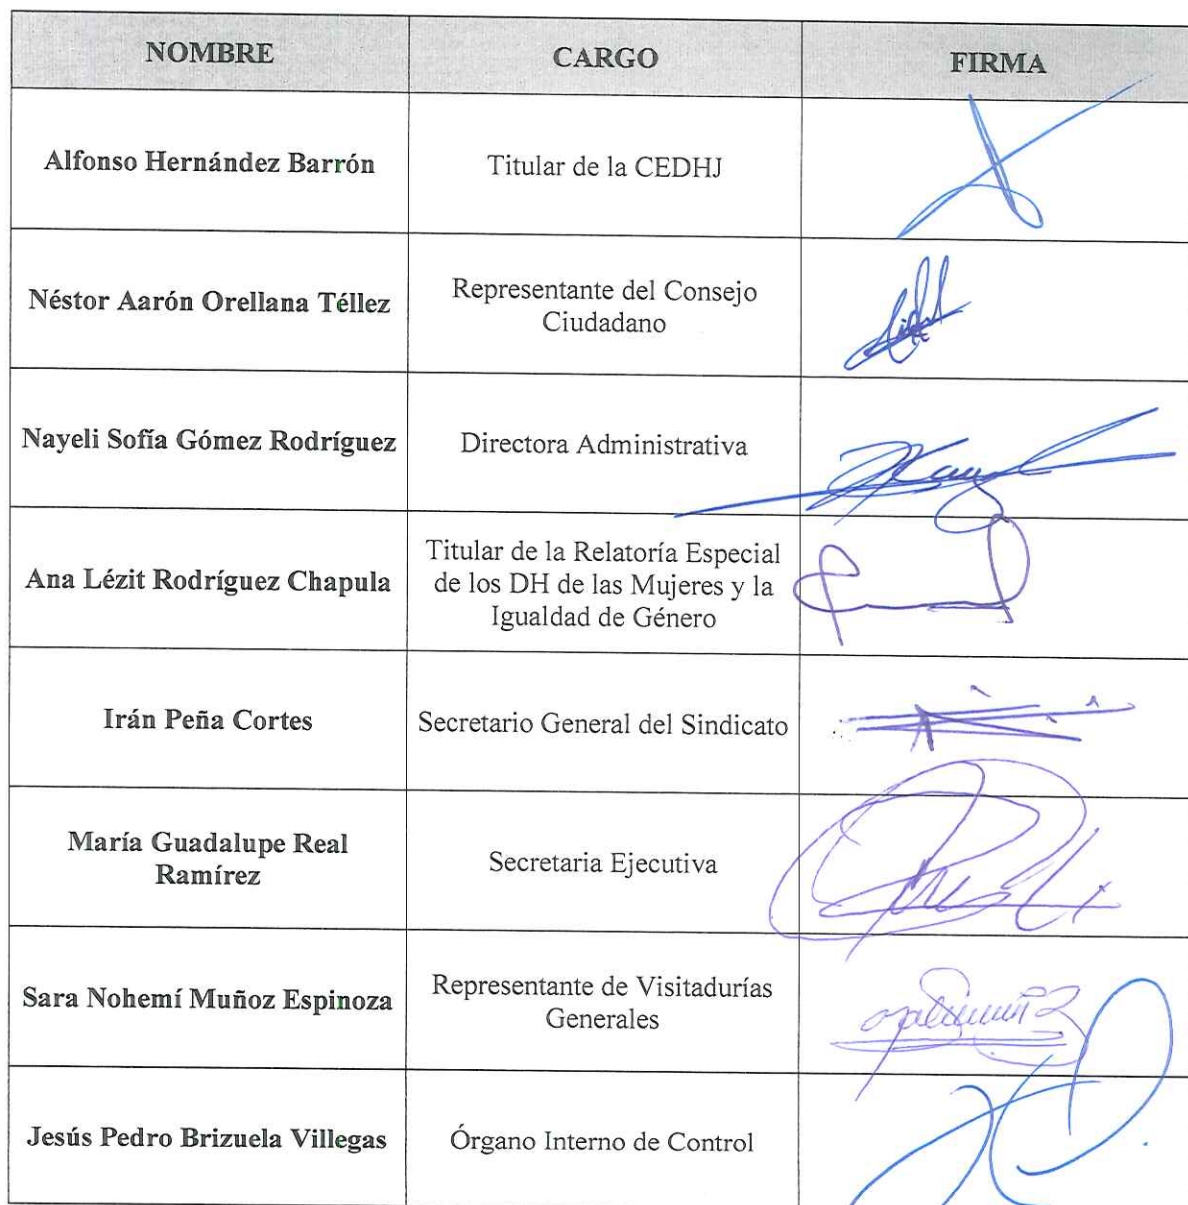 NOMBRE CARGO FIRMA
Alfonso Hernández Barrón Titular de la CEDHJ
Néstor Aarón Orellana Téllez Representante del Consejo
Ciudadano
Nayeli Sofía Gómez Rodríguez Directora Administrativa
Ana Lézit Rodríguez Chapula Titular de la Relatoría Especial
de los DH de las Mujeres y la
Igualdad de Género
Irán Peña Cortes Secretario General del Sindicato
María Guadalupe Real
Ramírez
Secretaria Ejecutiva
Sara Nohemí Muñoz Espinoza Representante de Visitadurías
Generales
Jesús Pedro Brizuela Villegas Órgano Interno de Control